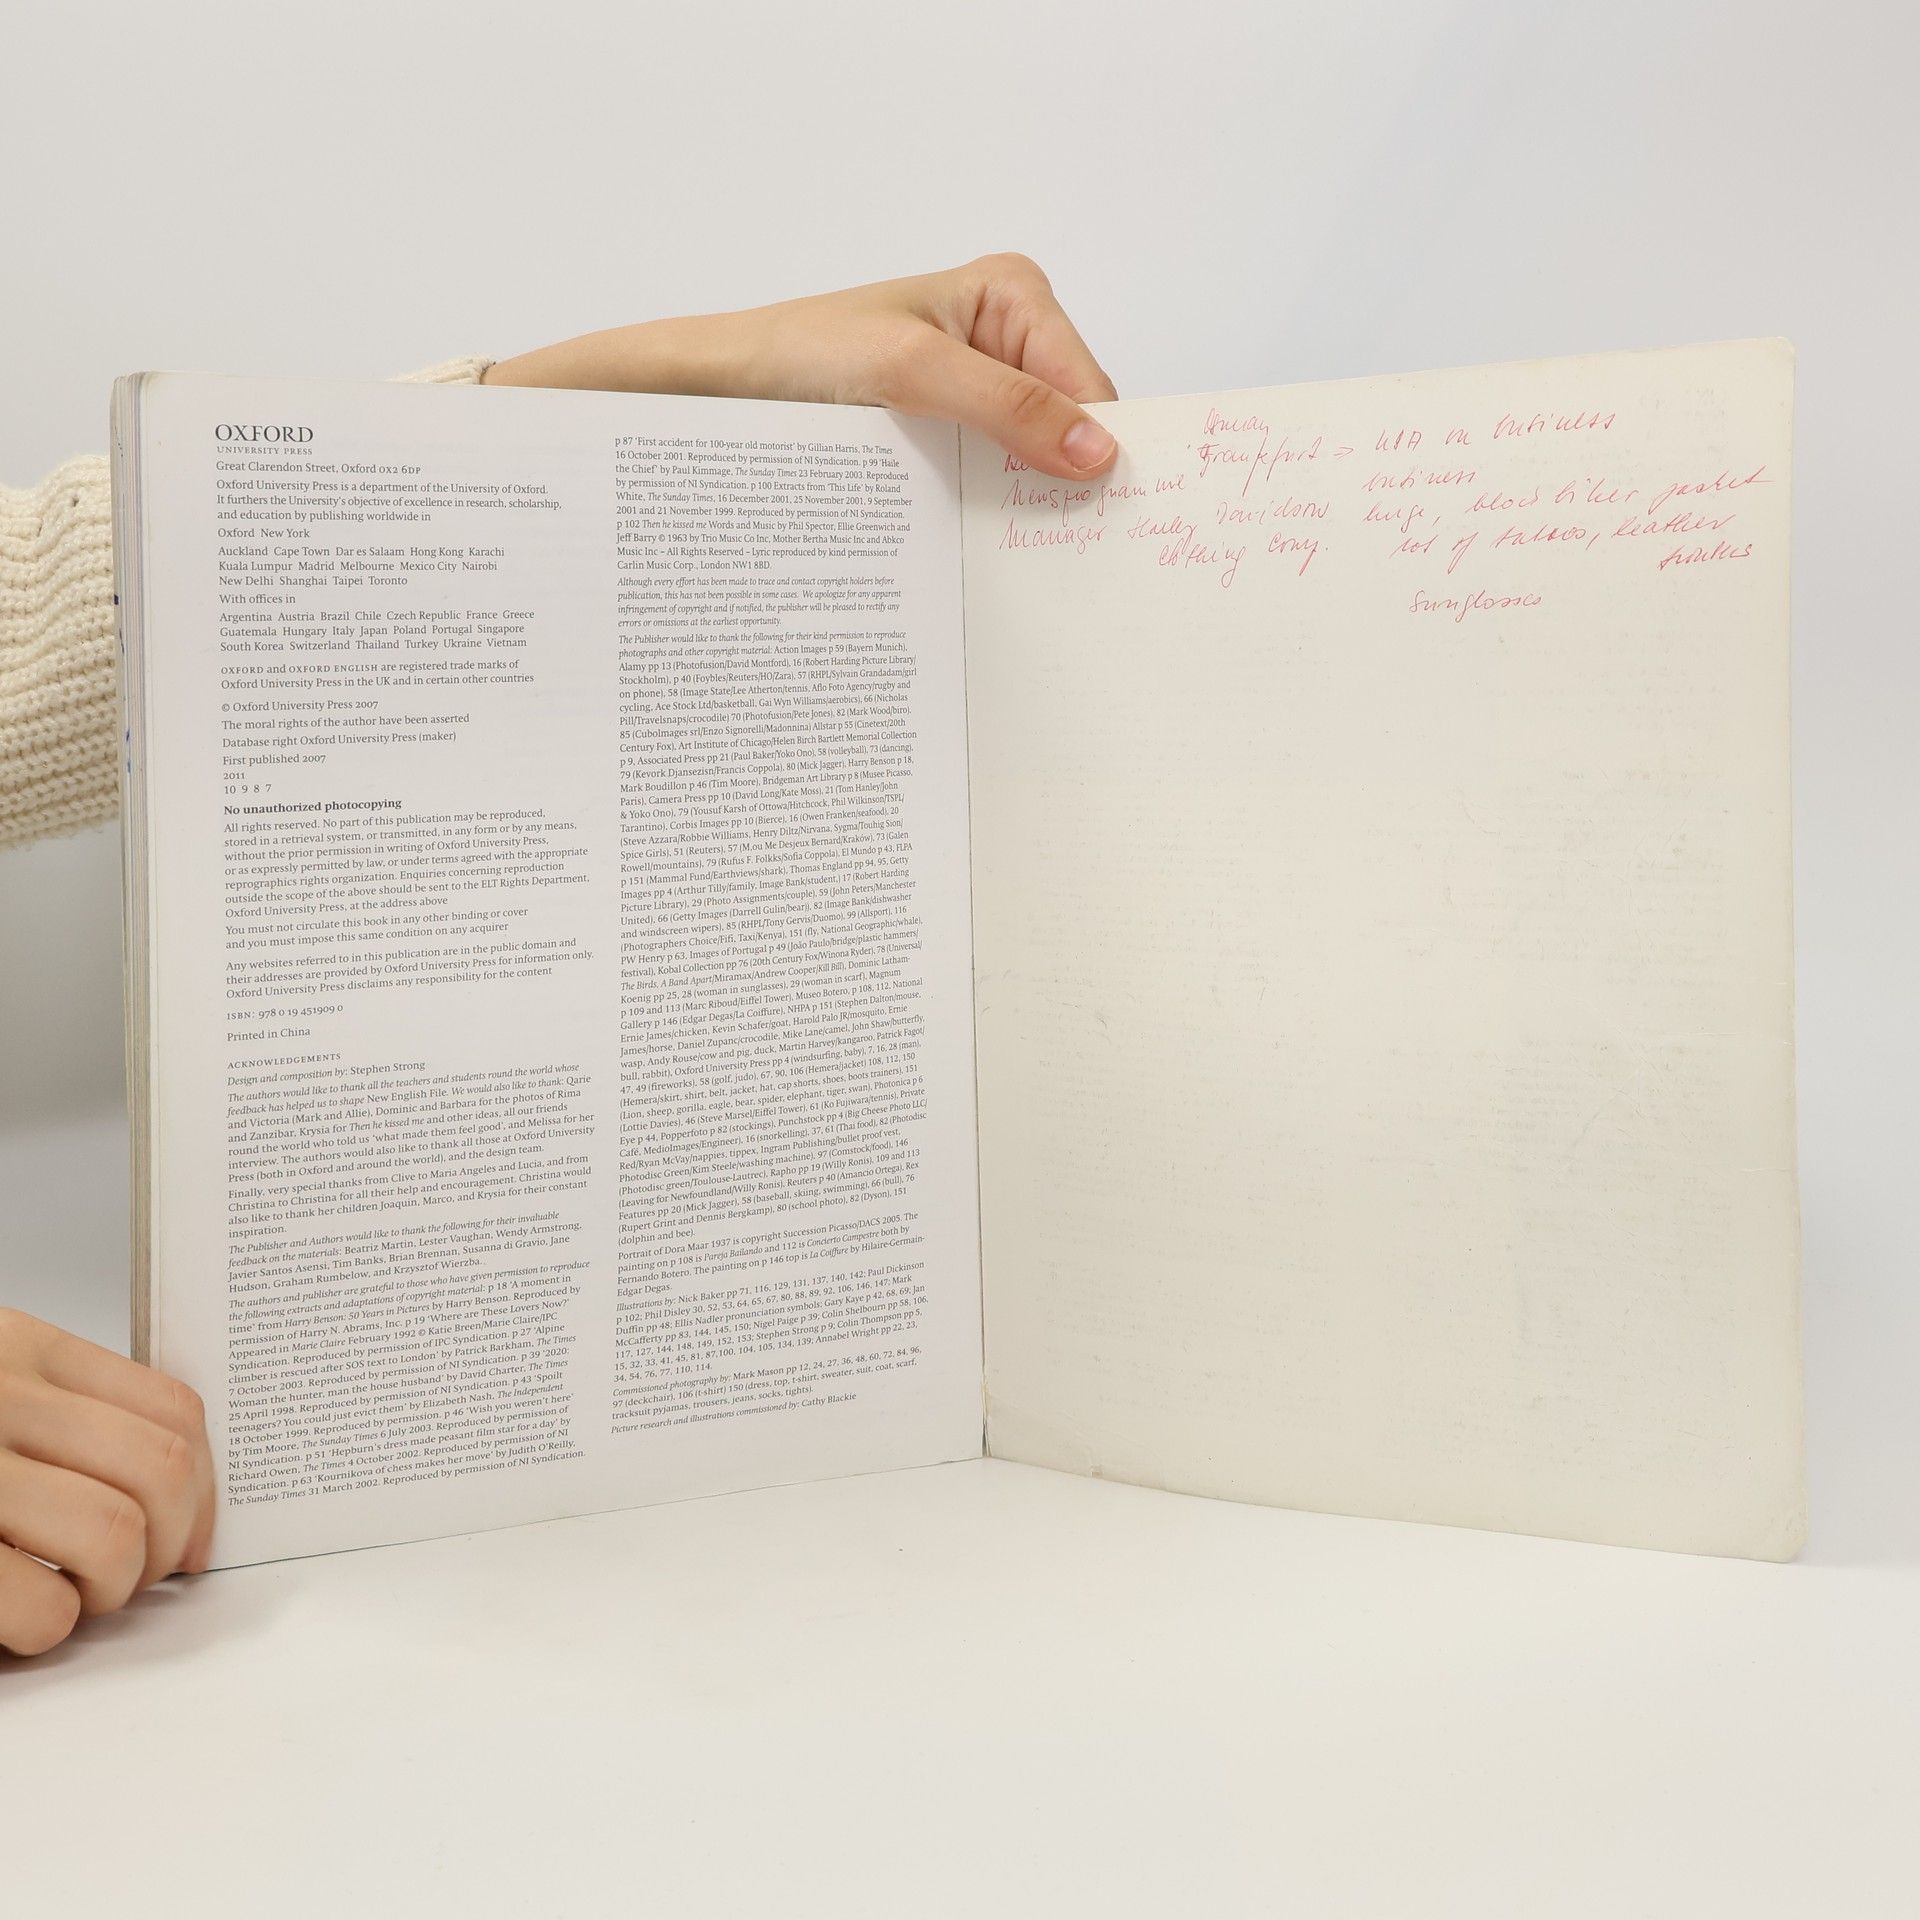 OXFORD
UNIVERSITY PRESS
Great Clarendon Street, Oxford OX2 6DP
Oxford University Press is a department of the University of Oxford.
It furthers the University's objective of excellence in research, scholarship,
and education by publishing worldwide in
Oxford New York
Auckland Cape Town Dar es Salaam Hong Kong Karachi
Kuala Lumpur Madrid Melbourne Mexico City Nairobi
New Delhi Shanghai Taipei Toronto
With offices in
Argentina Austria Brazil Chile Czech Republic France Greece
Guatemala Hungary Italy Japan Poland Portugal Singapore
South Korea Switzerland Thailand Turkey Ukraine Vietnam
OXFORD and OXFORD ENGLISH are registered trade marks of
Oxford University Press in the UK and in certain other countries
© Oxford University Press 2007
The moral rights of the author have been asserted
Database right Oxford University Press (maker)
First published 2007
2011
10 9 8 7
No unauthorized photocopying
All rights reserved. No part of this publication may be reproduced,
stored in a retrieval system, or transmitted, in any form or by any means,
without the prior permission in writing of Oxford University Press,
or as expressly permitted by law, or under terms agreed with the appropriate
reprographics rights organization. Enquiries concerning reproduction
outside the scope of the above should be sent to the ELT Rights Department,
Oxford University Press, at the address above
You must not circulate this book in any other binding or cover
and you must impose this same condition on any acquirer
Any websites referred to in this publication are in the public domain and
their addresses are provided by Oxford University Press for information only.
Oxford University Press disclaims any responsibility for the content
ISBN: 978 0 19 451909 0
Printed in China
ACKNOWLEDGEMENTS
Design and composition by: Stephen Strong
The authors would like to thank all the teachers and students round the world whose
feedback has helped us to shape New English File. We would also like to thank: Qarie
and Victoria (Mark and Allie), Dominic and Barbara for the photos of Rima
and Zanzibar, Krysia for Then he kissed me and other ideas, all our friends
round the world who told us 'what made them feel good', and Melissa for her
interview. The authors would also like to thank all those at Oxford University
Press (both in Oxford and around the world), and the design team.
Finally, very special thanks from Clive to Maria Angeles and Lucia, and from
Christina to Christina for all their help and encouragement. Christina would
also like to thank her children Joaquin, Marco, and Krysia for their constant
inspiration.
The Publisher and Authors would like to thank the following for their invaluable
feedback on the materials: Beatriz Martin, Lester Vaughan, Wendy Armstrong,
Javier Santos Asensi, Tim Banks, Brian Brennan, Susanna di Gravio, Jane
Hudson, Graham Rumbelow, and Krzysztof Wierzba.
The authors and publisher are grateful to those who have given permission to reproduce
the following extracts and adaptations of copyright material: p 18 'A moment in
time' from Harry Benson: 50 Years in Pictures by Harry Benson. Reproduced by
permission of Harry N. Abrams, Inc. p 19 'Where are These Lovers Now?'
Appeared in Marie Claire February 1992 © Katie Breen/Marie Claire/IPC
Syndication. Reproduced by permission of IPC Syndication. p 27 'Alpine
climber is rescued after SOS text to London' by Patrick Barkham, The Times
7 October 2003. Reproduced by permission of NI Syndication. p 39 '2020:
Woman the hunter, man the house husband' by David Charter, The Times
25 April 1998. Reproduced by permission of NI Syndication. p 43 'Spoilt
teenagers? You could just evict them' by Elizabeth Nash, The Independent
18 October 1999. Reproduced by permission. p 46 'Wish you weren't here'
by Tim Moore, The Sunday Times 6 July 2003. Reproduced by permission of
NI Syndication. p 51 'Hepburn's dress made peasant film star for a day' by
Richard Owen, The Times 4 October 2002. Reproduced by permission of NI
Syndication. p 63 'Kournikova of chess makes her move' by Judith O'Reilly,
The Sunday Times 31 March 2002. Reproduced by permission of NI Syndication.
p 87 'First accident for 100-year old motorist' by Gillian Harris, The Times
16 October 2001. Reproduced by permission of NI Syndication. p 99 'Haile
the Chief' by Paul Kimmage, The Sunday Times 23 February 2003. Reproduced
by permission of NI Syndication. p 100 Extracts from 'This Life' by Roland
White, The Sunday Times, 16 December 2001, 25 November 2001, 9 September
2001 and 21 November 1999. Reproduced by permission of NI Syndication.
p 102 Then he kissed me Words and Music by Phil Spector, Ellie Greenwich and
Jeff Barry © 1963 by Trio Music Co Inc, Mother Bertha Music Inc and Abkco
Music Inc – All Rights Reserved – Lyric reproduced by kind permission of
Carlin Music Corp., London NW1 8BD.
Although every effort has been made to trace and contact copyright holders before
publication, this has not been possible in some cases. We apologize for any apparent
infringement of copyright and if notified, the publisher will be pleased to rectify any
errors or omissions at the earliest opportunity.
The Publisher would like to thank the following for their kind permission to reproduce
photographs and other copyright material: Action Images p 59 (Bayern Munich),
Alamy pp 13 (Photofusion/David Montford), 16 (Robert Harding Picture Library/
Stockholm), p 40 (Foybles/Reuters/HO/Zara), 57 (RHPL/Sylvain Grandadam/girl
on phone), 58 (Image State/Lee Atherton/tennis, Aflo Foto Agency/rugby and
cycling, Ace Stock Ltd/basketball, Gai Wyn Williams/aerobics), 66 (Nicholas
Pill/Travelsnaps/crocodile) 70 (Photofusion/Pete Jones), 82 (Mark Wood/biro),
85 (CuboImages srl/Enzo Signorelli/Madonnina) Allstar p 55 (Cinetext/20th
Century Fox), Art Institute of Chicago/Helen Birch Bartlett Memorial Collection
p 9, Associated Press pp 21 (Paul Baker/Yoko Ono), 58 (volleyball), 73 (dancing),
79 (Kevork Djansezisn/Francis Coppola), 80 (Mick Jagger), Harry Benson p 18,
Mark Boudillon p 46 (Tim Moore), Bridgeman Art Library p 8 (Musee Picasso,
Paris), Camera Press pp 10 (David Long/Kate Moss), 21 (Tom Hanley/John
& Yoko Ono), 79 (Yousuf Karsh of Ottowa/Hitchcock, Phil Wilkinson/TSPL/
Tarantino), Corbis Images pp 10 (Bierce), 16 (Owen Franken/seafood), 20
(Steve Azzara/Robbie Williams, Henry Diltz/Nirvana, Sygma/Touhig Sion/
Spice Girls), 51 (Reuters), 57 (M,ou Me Desjeux Bernard/Kraków), 73 (Galen
Rowell/mountains), 79 (Rufus F. Folkks/Sofia Coppola), El Mundo p 43, FLPA
p 151 (Mammal Fund/Earthviews/shark), Thomas England pp 94, 95, Getty
Images pp 4 (Arthur Tilly/family, Image Bank/student,) 17 (Robert Harding
Picture Library), 29 (Photo Assignments/couple), 59 (John Peters/Manchester
United), 66 (Getty Images (Darrell Gulin/bear)), 82 (Image Bank/dishwasher
and windscreen wipers), 85 (RHPL/Tony Gervis/Duomo), 99 (Allsport), 116
(Photographers Choice/Fifi, Taxi/Kenya), 151 (fly, National Geographic/whale),
PW Henry p 63, Images of Portugal p 49 (João Paulo/bridge/plastic hammers/
festival), Kobal Collection pp 76 (20th Century Fox/Winona Ryder), 78 (Universal/
The Birds, A Band Apart/Miramax/Andrew Cooper/Kill Bill), Dominic Latham-
Koenig pp 25, 28 (woman in sunglasses), 29 (woman in scarf), Magnum
p 109 and 113 (Marc Riboud/Eiffel Tower), Museo Botero, p 108, 112, National
Gallery p 146 (Edgar Degas/La Coiffure), NHPA p 151 (Stephen Dalton/mouse,
Ernie James/chicken, Kevin Schafer/goat, Harold Palo JR/mosquito, Ernie
James/horse, Daniel Zupanc/crocodile, Mike Lane/camel, John Shaw/butterfly,
wasp, Andy Rouse/cow and pig, duck, Martin Harvey/kangaroo, Patrick Fagot/
bull, rabbit), Oxford University Press pp 4 (windsurfing, baby), 7, 16, 28 (man),
47, 49 (fireworks), 58 (golf, judo), 67, 90, 106 (Hemera/jacket) 108, 112, 150
(Hemera/skirt, shirt, belt, jacket, hat, cap shorts, shoes, boots trainers), 151
(Lion, sheep, gorilla, eagle, bear, spider, elephant, tiger, swan), Photonica p 6
(Lottie Davies), 46 (Steve Marsel/Eiffel Tower), 61 (Ko Fujiwara/tennis), Private
Eye p 44, Popperfoto p 82 (stockings), Punchstock pp 4 (Big Cheese Photo LLC/
Café, MedioImages/Engineer), 16 (snorkelling), 37, 61 (Thai food), 82 (Photodisc
Red/Ryan McVay/nappies, tippex, Ingram Publishing/bullet proof vest,
Photodisc Green/Kim Steele/washing machine), 97 (Comstock/food), 146
(Photodisc green/Toulouse-Lautrec), Rapho pp 19 (Willy Ronis), 109 and 113
(Leaving for Newfoundland/Willy Ronis), Reuters p 40 (Amancio Ortega), Rex
Features pp 20 (Mick Jagger), 58 (baseball, skiing, swimming), 66 (bull), 76
(Rupert Grint and Dennis Bergkamp), 80 (school photo), 82 (Dyson), 151
(dolphin and bee).
Portrait of Dora Maar 1937 is copyright Succession Picasso/DACS 2005. The
painting on p 108 is Pareja Bailando and 112 is Concierto Campestre both by
Fernando Botero. The painting on p 146 top is La Coiffure by Hilaire-Germain-
Edgar Degas.
Illustrations by: Nick Baker pp 71, 116, 129, 131, 137, 140, 142; Paul Dickinson
p 102; Phil Disley 30, 52, 53, 64, 65, 67, 80, 88, 89, 92, 106, 146, 147; Mark
Duffin pp 48; Ellis Nadler pronunciation symbols; Gary Kaye p 42, 68, 69; Jan
McCafferty pp 83, 144, 145, 150; Nigel Paige p 39; Colin Shelbourn pp 58, 106,
117, 127, 144, 148, 149, 152, 153; Stephen Strong p 9; Colin Thompson pp 5,
15, 32, 33, 41, 45, 81, 87,100, 104, 105, 134, 139; Annabel Wright pp 22, 23,
34, 54, 76, 77, 110, 114.
Commissioned photography by: Mark Mason pp 12, 24, 27, 36, 48, 60, 72, 84, 96,
97 (deckchair), 106 (t-shirt) 150 (dress, top, t-shirt, sweater, suit, coat, scarf,
tracksuit pyjamas, trousers, jeans, socks, tights).
Picture research and illustrations commissioned by: Cathy Blackie
Frankfurt → USA on business
business
Manager Harley Davidson huge, black biker jacket
clothing comp. lot of tatoos, leather
Sunglasses